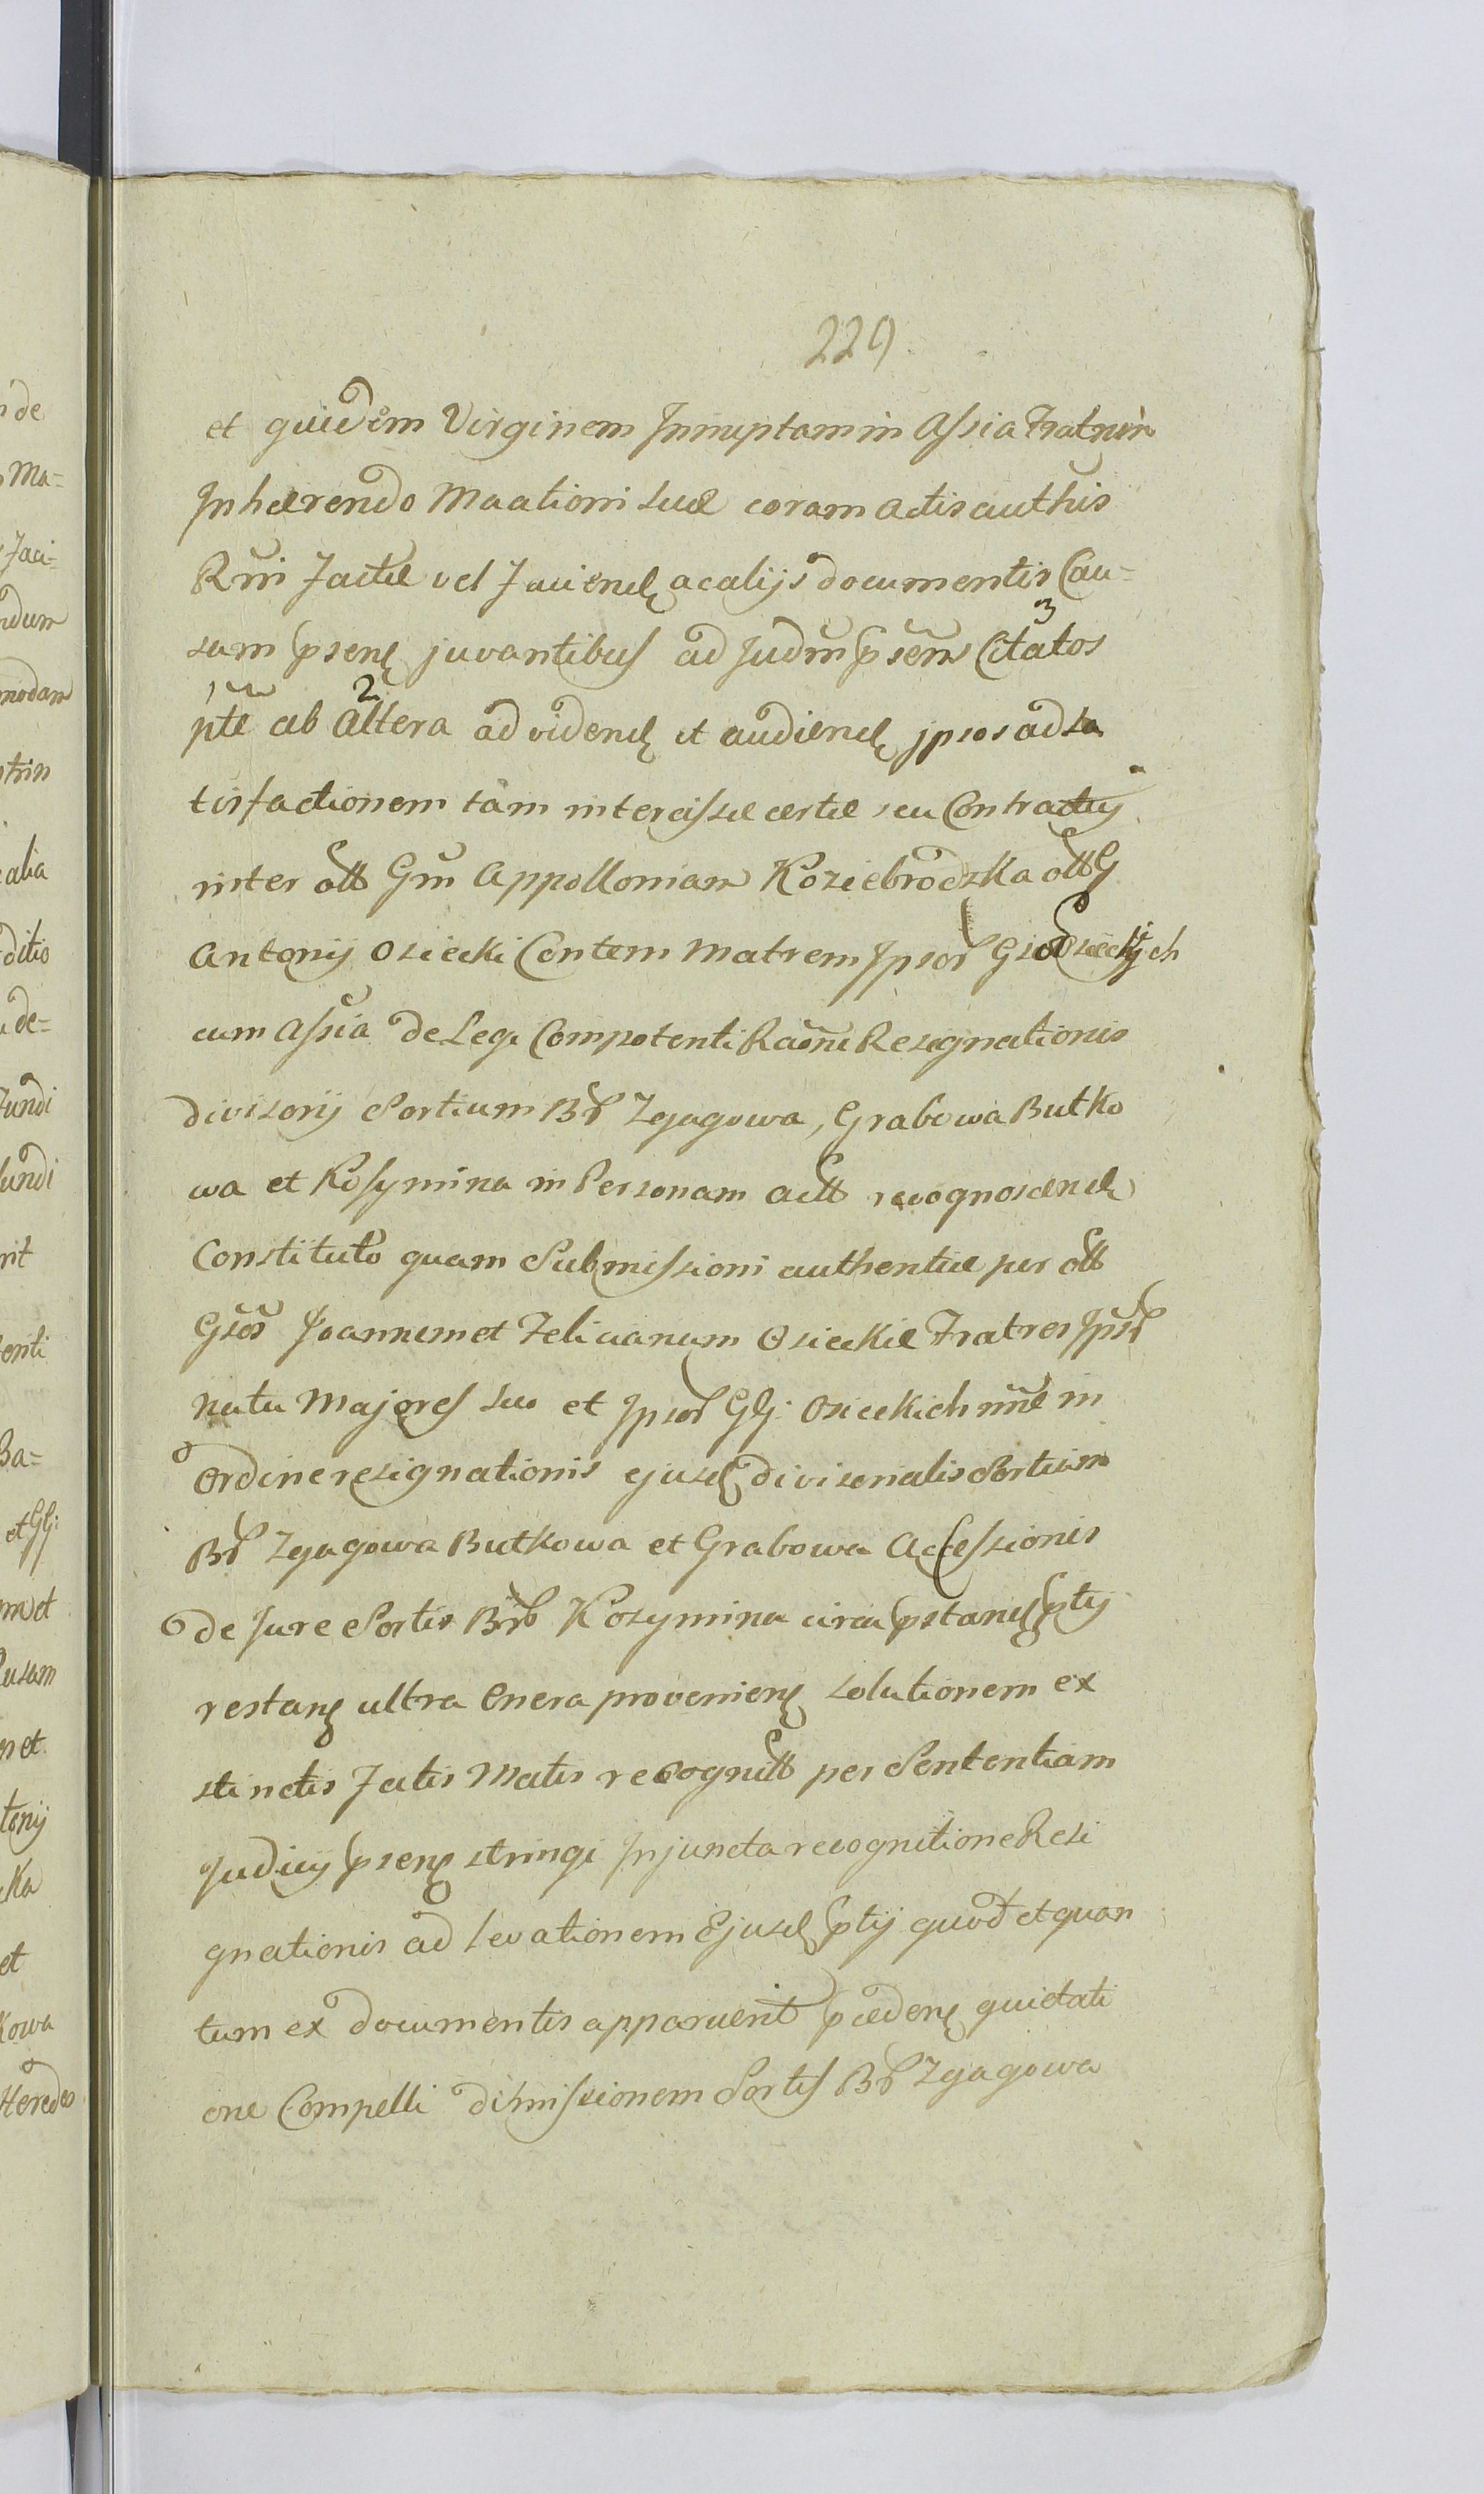 229
et quidem Virginem Innuptam in Assia Fratrum
Inhærendo Maationi suæ coram Actis authis
Rmi factæ vel faciend ac alijs documentis Cau-
sam psens juvantibus ad Judm psens Citatos 3
1 pte ab 2 Altera ad videnđ et audienđ ipsos ad sa
tisfactionem tàm intercissæ certæ seu Contractus
inter ołł Gm Appolloniam Koziebrodzka ołł G
Antonij Osiecki Contem Matrem Ipsor Gsor Osieckich
cum Assia de Lege Competenti Raõne Resignationis
divisorij Sortium Br Zgagowa, Grabowa Butko
wa et Kosymina in Personam acłł recognoscend
Constituto quam Submissioni authenticæ per ołł
Gsos Joannem et Felicianum Osieckie Fratres Ipsor
natu Majores suo et Ipsor Glj: Osieckich nne in
Ordine resignationis ejusd divisorialis Sortium
Br Zgagowa Butkowa et Grabowa Accessionis
de Jure Sortis Br Kosymina circa pstand ptij
restans ultra Onera proveniens solutionem ex
stinctis Fatis Matis recognitt per Sententiam
Judicij psens stringi Injuncta recognitione Resi
gnationis ad levationem Ejusd ptij quod et quan
tum ex documentis apparuerit pcedens quietati
one Compelli dimissionem Sortis Br Zgagowa
n de
Ma-
Faci-
ndum
modam
alia
ditio
de-
fundi
fundi
rit
enti
Ba-
et Glj:
m et
Causam
et
tonij
ka
et
kowa
Heredes